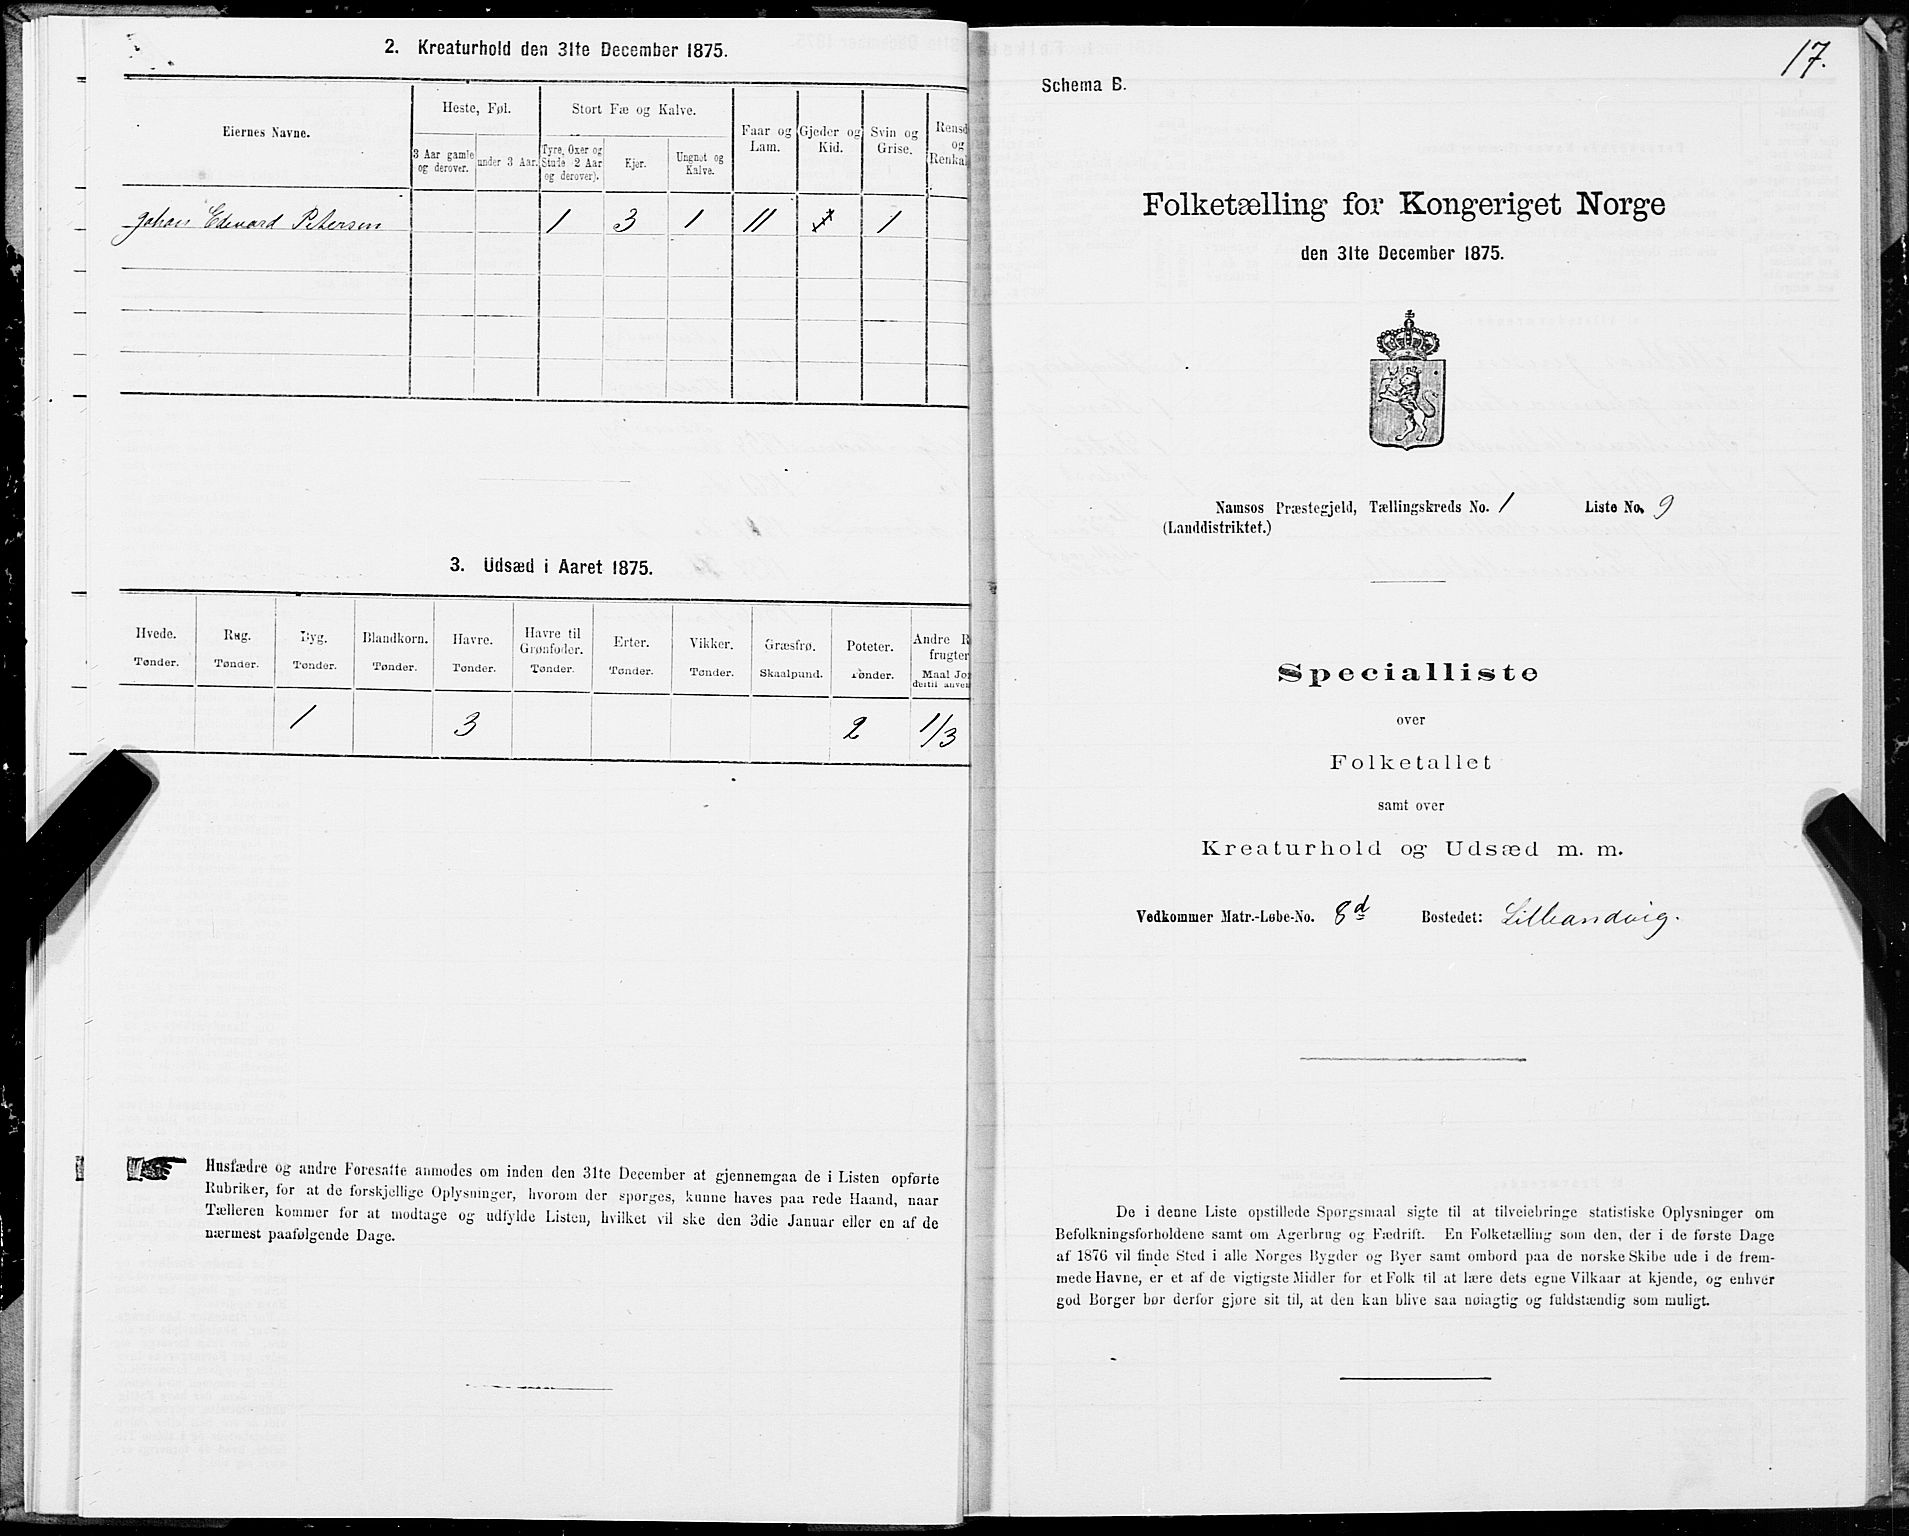 2. Kreaturhold den 31te December 1875.
Eiernes Navne.
Heste, Føl.
Stort Fæ og Kalve.
Faar og Lam.
Gjeder og Kid.
Svin og Grise.
Rensd
og
Renkal
3 Aar gamle og derover.
under 3 Aar.
Tyre, Oxer og Stude 2 Aar og derover).
Kjør.
Ungnøt og Kalve.
Johan Edevard Petersen 1 3 1 11 1
3. Udsæd i Aaret 1875.
Hvede. Rug. Byg. Blandkorn. Havre. Havre til Grønfoder. Erter. Vikker. Græsfrø. Poteter. Andre R
frugter
Tønder. Tønder. Tønder. Tønder. Tønder. Tønder. Tønder. Tønder. Skaalpund. Tønder. Maal Jo
dertil anven
1 3 2 1/3
Husfædre og andre Foresatte anmodes om inden den 31te December at gjennemgaa de i Listen opførte
Rubriker, for at de forskjellige Oplysninger, hvorom der spørges, kunne haves paa rede Haand, naar
Tælleren kommer for at modtage og udfylde Listen, hvilket vil ske den 3die Januar eller en af de
nærmest paafølgende Dage.
17.
Schema B.
Folketælling for Kongeriget Norge
den 31te December 1875.
Namsos Præstegjeld, Tællingskreds No. 1 Liste No. 9
(Landdistriktet.)
Specialliste
over
Folketallet
samt over
Kreaturhold og Udsæd m. m.
Vedkommer Matr.-Løbe-No. 8d Bostedet: Lilleandvig.
De i denne Liste opstillede Spørgsmaal sigte til at tilveiebringe statistiske Oplysninger om
Befolkningsforholdene samt om Agerbrug og Fædrift. En Folketælling som den, der i de første Dage
af 1876 vil finde Sted i alle Norges Bygder og Byer samt ombord paa de norske Skibe ude i de frem-
mede Havne, er et af de vigtigste Midler for et Folk til at lære dets egne Vilkaar at kjende, og enhver
god Borger bør derfor gjøre sit til, at den kan blive saa nøiagtig og fuldstændig som muligt.